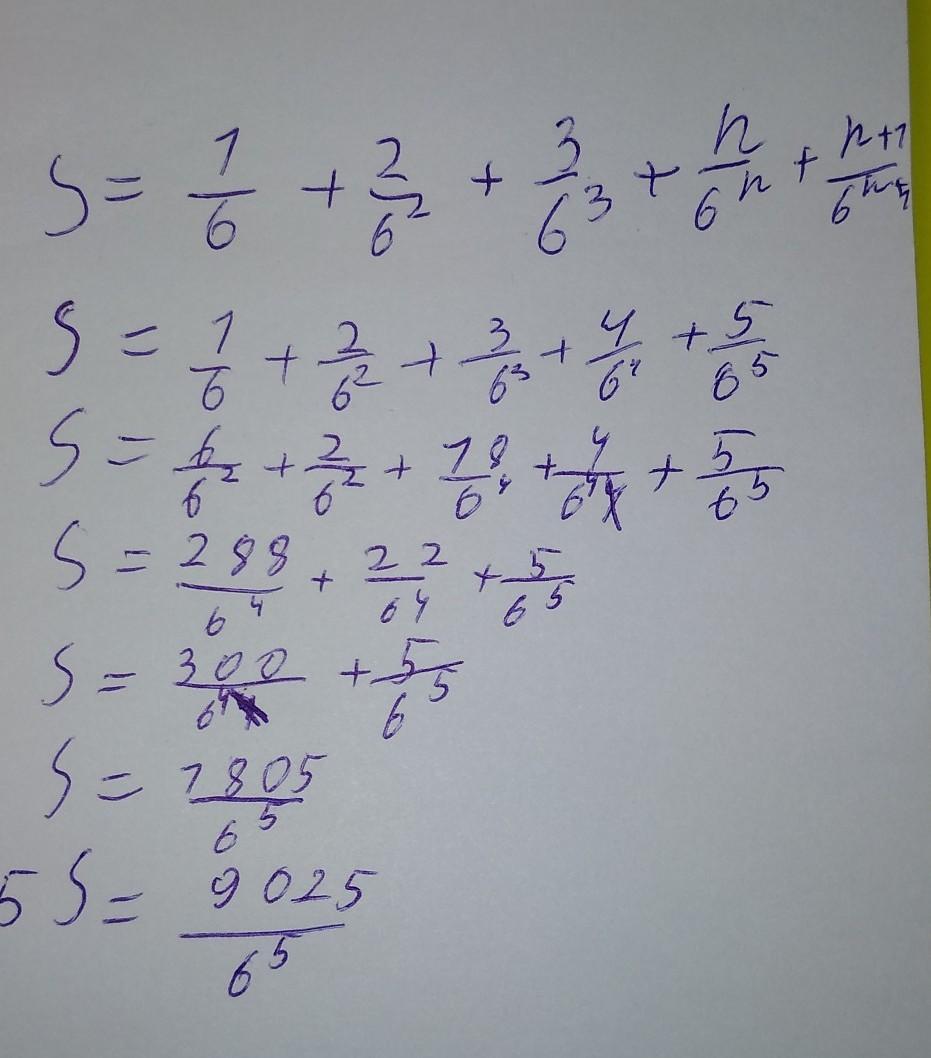 S = 1/6 + 2/6² + 3/6³ + n/6ⁿ + n+1/6ⁿ⁺¹
S = 1/6 + 2/6² + 3/6³ + 4/6⁴ + 5/6⁵
S = 6/6² + 2/6² + 18/6⁴ + 4/6⁴ + 5/6⁵
S = 288/6⁴ + 22/6⁴ + 5/6⁵
S = 300/6⁴ + 5/6⁵
S = 1805/6⁵
5 S = 9025/6⁵